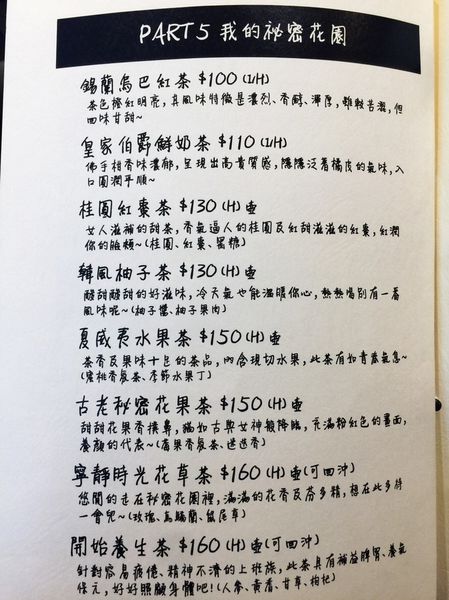 PART 5 我的祕密花園
錫蘭烏巴紅茶 $100 (I/H)
茶色橙紅明亮，具風味特徵是濃烈、香醇、渾厚，雖較苦澀，但
回味甘甜~
皇家伯爵鮮奶茶 $110 (I/H)
佛手柑香味濃郁，呈現出高貴質感，隱隱泛著橘皮的氣味，入
口圓潤平順~
桂圓紅棗茶 $130 (H) 壺
女人滋補的甜茶，香氣逼人的桂圓及紅甜滋滋的紅棗，紅潤
你的臉頰~(桂圓、紅棗、蜜糖)
韓風柚子茶 $130 (H) 壺
酸甜酸甜的好滋味，冷天氣也能溫暖你心，熱熱喝別有一番
風味呢~(柚子醬、柚子果肉)
夏威夷水果茶 $150 (H) 壺
茶香及果味十足的茶品，內含現切水果，此茶有如青慈氣息~
(蜜桃香髮茶、季節水果丁)
古老秘密花果茶 $150 (H) 壺
甜甜花果香撲鼻，宛如古典女神般降臨，充滿粉紅色的畫面，
養顏的代表~(
寧靜時光花草茶 $160 (H) 壺(可回沖)
悠閒的走在祕密花園裡，滿滿的花香及芬多精，想在此多待
一會兒~(玫瑰、馬鞭蘭、鼠尾草)
開始養生茶 $160 (H) 壺(可回沖)
針對容易疲倦、精神不濟的上班族，此茶具有補益脾胃、養氣
保元，好好照顧身體吧!(人參、黃耆、甘草、枸杞)